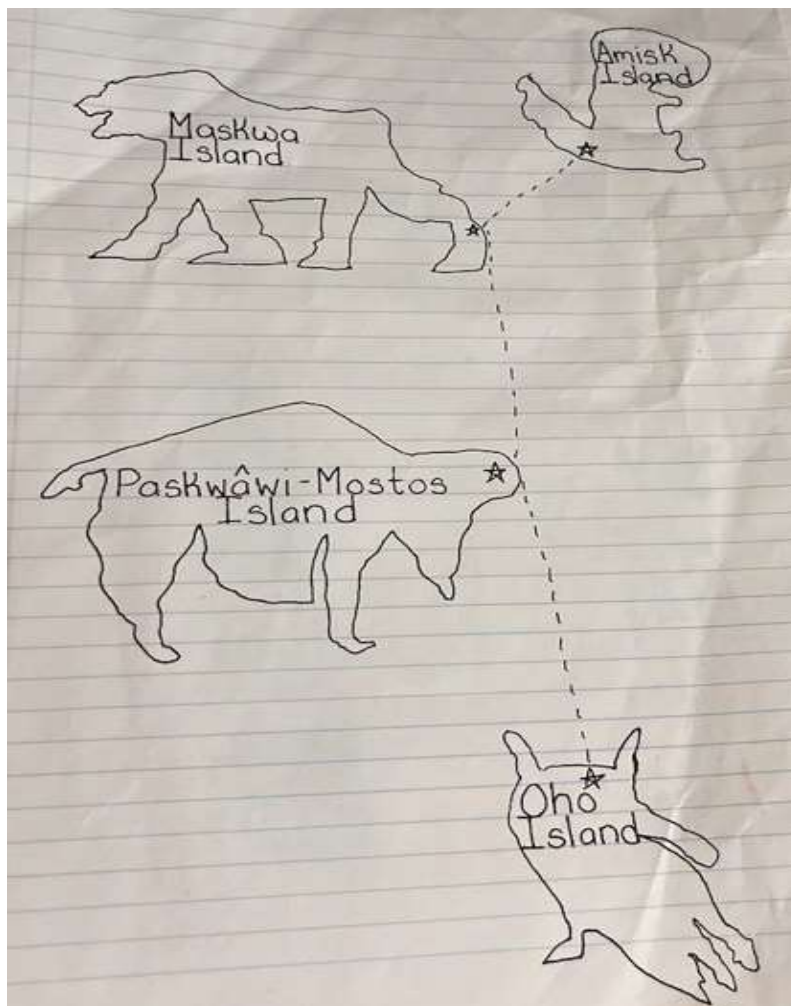 Amisk
Island
Maskwa
Island
Paskwâwi-Mostos
Island
Oho
Island